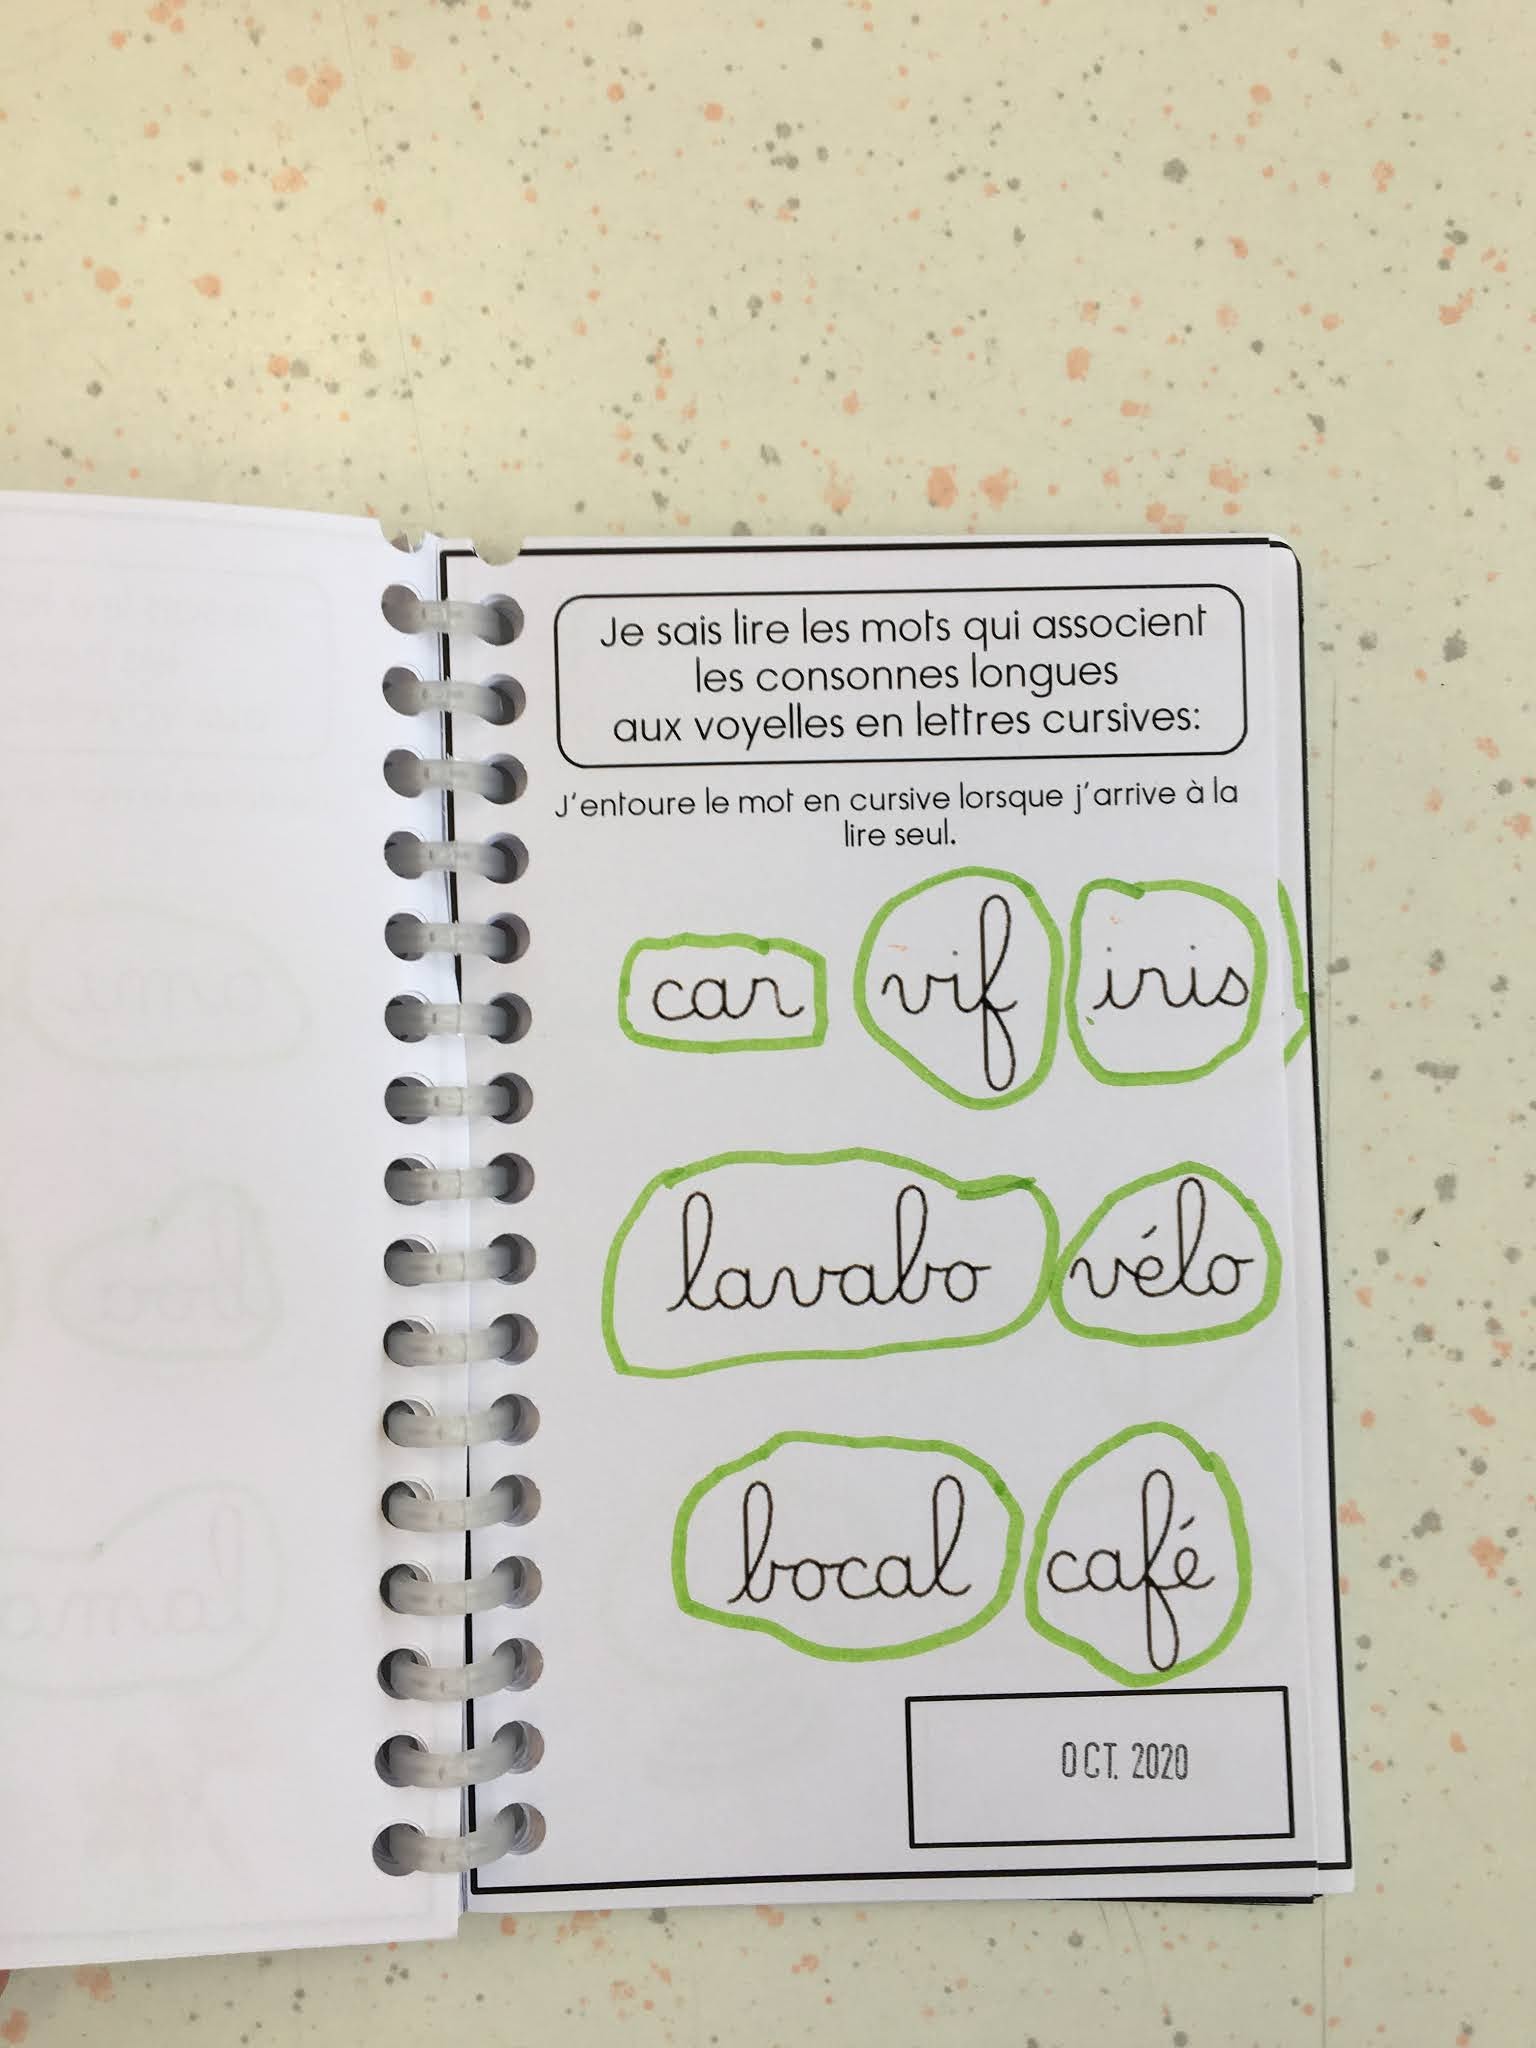 Je sais lire les mots qui associent
les consonnes longues
aux voyelles en lettres cursives:
J'entoure le mot en cursive lorsque j'arrive à la
lire seul.
car vif iris
lavabo vélo
bocal café
OCT. 2020